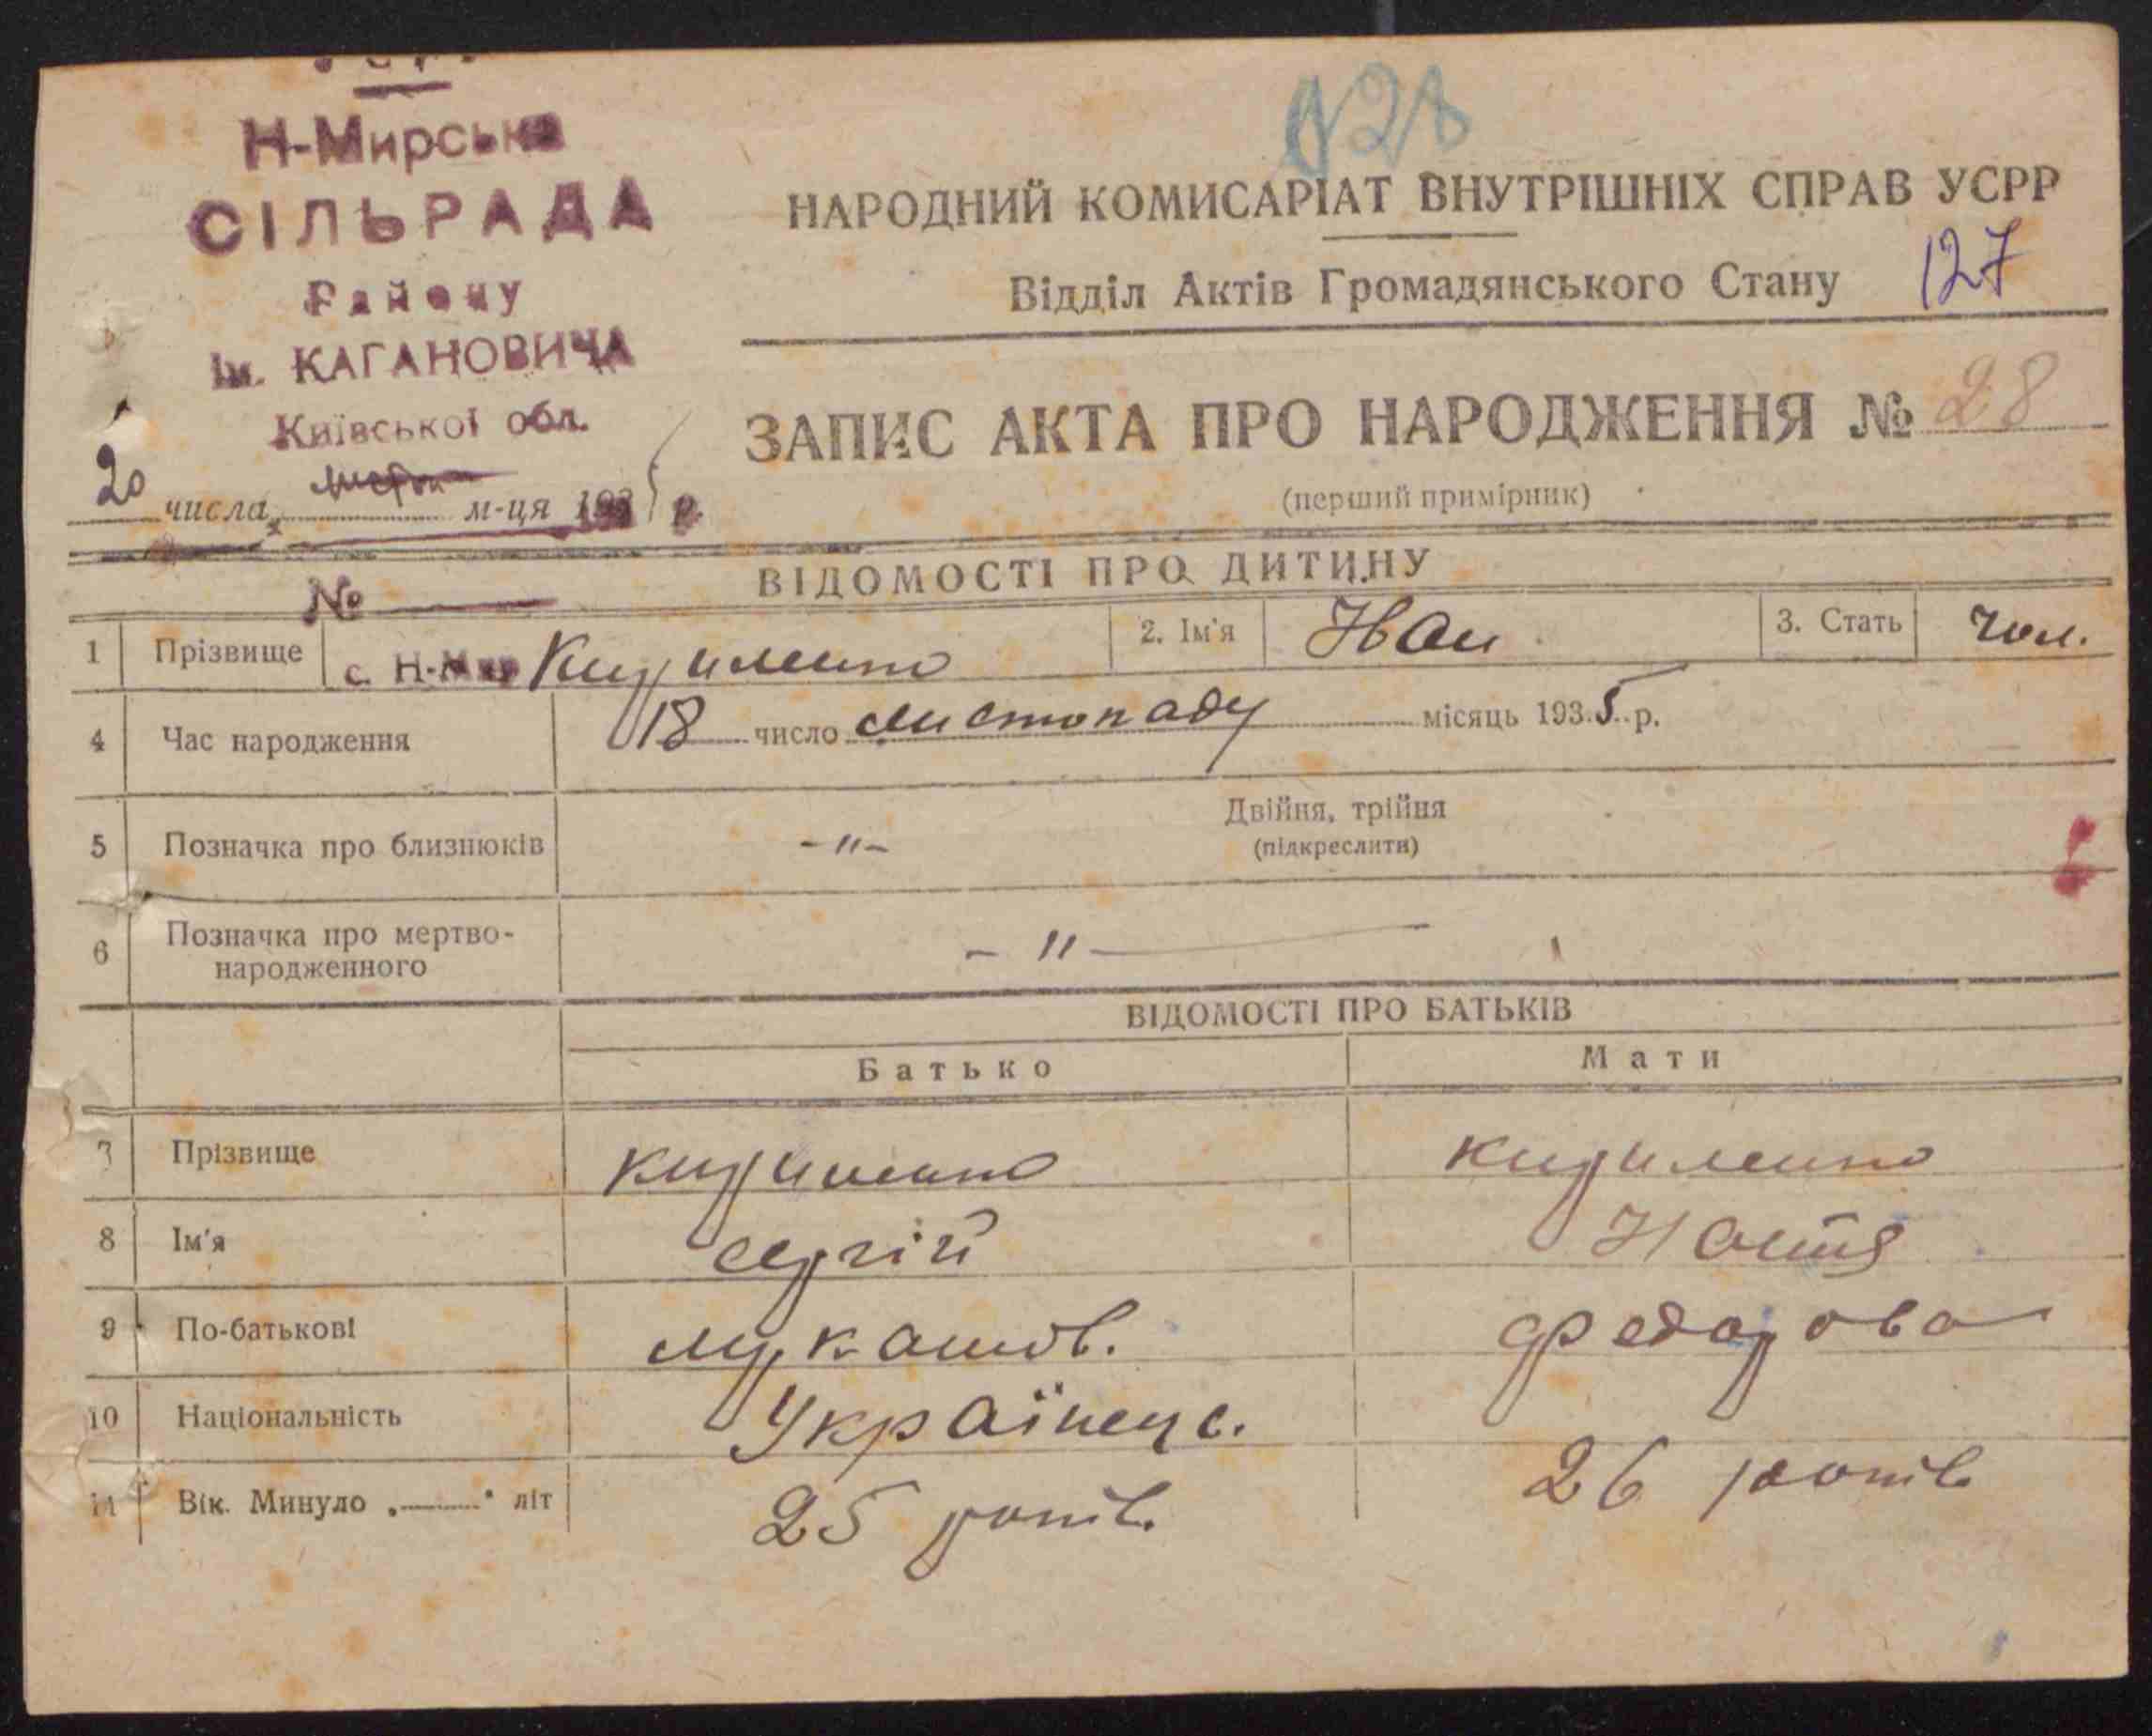 Н-Мирська
СІЛЬРАДА
Району
Ім. КАГАНОВИЧА
Київської обл.
20 числа м-ця 1935 р.
№
с. Н-Мир
№28
НАРОДНИЙ КОМИСАРІАТ ВНУТРІШНІХ СПРАВ УСРР
Відділ Актів Громадянського Стану 127
ЗАПИС АКТА ПРО НАРОДЖЕННЯ № 28
(перший примірник)
ВІДОМОСТІ ПРО ДИТИНУ
1 Прізвище Кириленко 2. Ім'я Іван 3. Стать чол.
4 Час народження 18 число листопаду місяць 1935 р.
5 Позначка про близнюків -"- Двійня, трійня
(підкреслити)
6 Позначка про мертво-
народженного -"-
ВІДОМОСТІ ПРО БАТЬКІВ
Батько Мати
7 Прізвище Кириленко Кириленко
8 Ім'я Сергій Настя
9 По-батькові федорова
10 Національність Українець.
11 Вік. Минуло „ " літ 25 років. 26 років